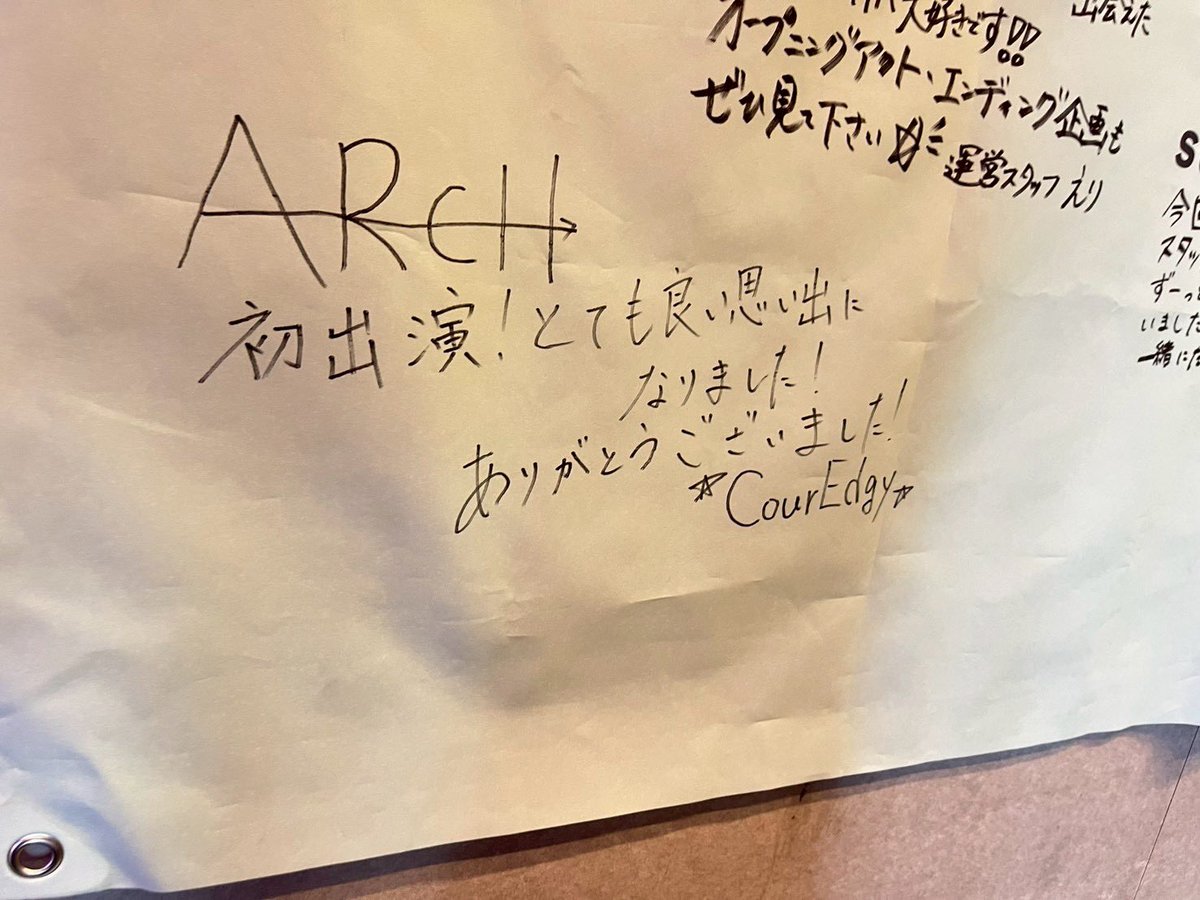 大好きです!!
オープニングアクト・エンディング企画も
ぜひ見て下さい☆
運営スタッフ えり
出会えた
ARCH
初出演！とても良い思い出に
なりました！
ありがとうございました！
☆CourEdgy☆
S
今回
スタッ
ずーっと
いました
一緒に